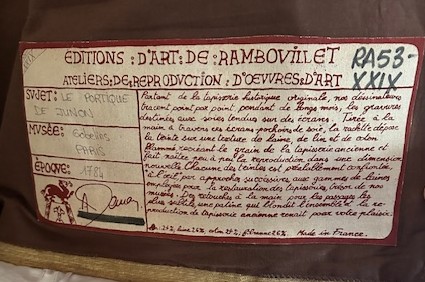 EDITIONS : D'ART : DE : RAMBOVILLET
ATELIERS:DE:REPRODVCTION : D'ŒVVRES:D'ART
RA53-
XXIX
SVJET: LE PORTIQUE
DE JUNON
MVSÉE: Gobelins
PARIS
ÉPOQUE: 1784
Partant de la tapisserie historique originale, nos dessinateurs
tracent point par point, pendant de longs mois, les gravures
destinées aux soies tendues sur des écrans. Tirée à la
main à travers ces écrans pochoirs de soie, la raclette dépose
la teinte sur une texture de laine, de lin et de coton
flammé, recréant le grain de la tapisserie ancienne et
fait naître peu à peu la reproduction dans une dimension
nouvelle. Chacune des teintes est préalablement confrontée,
à l'œil, par approches successives aux gammes de laines
employées pour la restauration des tapisseries, trésor de nos
musées. Les retouches à la main pour les passages les
plus subtils, une patine qui blondit l'ensemble et la re-
production de tapisserie ancienne renaît pour votre plaisir.
Made in France.